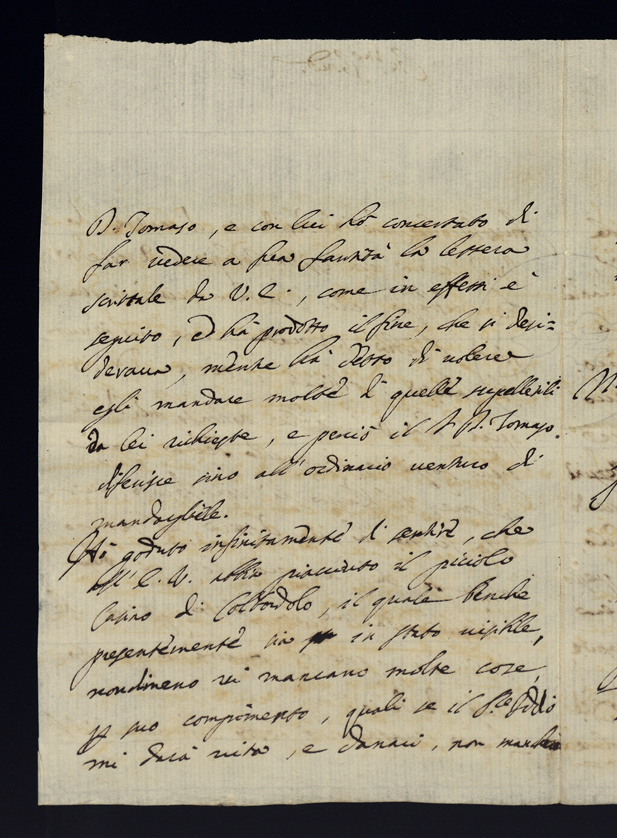 P. Tomaso, e con lui hò concertato di
far vedere a sua Santità la lettera
scrittale da V. E., come in effetti è
seguito, ed hà prodotto il fine, che si desi=
derava, mentre hà detto di volere
egli mandare molte di quelle supellettili
da lei richieste, e perciò il P. Tomaso
diferisce sino all'ordinario venturo di
mandargliele.
Hò goduto infinitamente di sentire, che
all'E. V. abbia piacciuto il piccolo
Casino di Coltordolo, il quale benche
presentemente sia in stato visibile,
nondimeno vi mancano molte cose,
suo compimento, quali se il Sig.re Iddio
mi darà vita, e danari, non